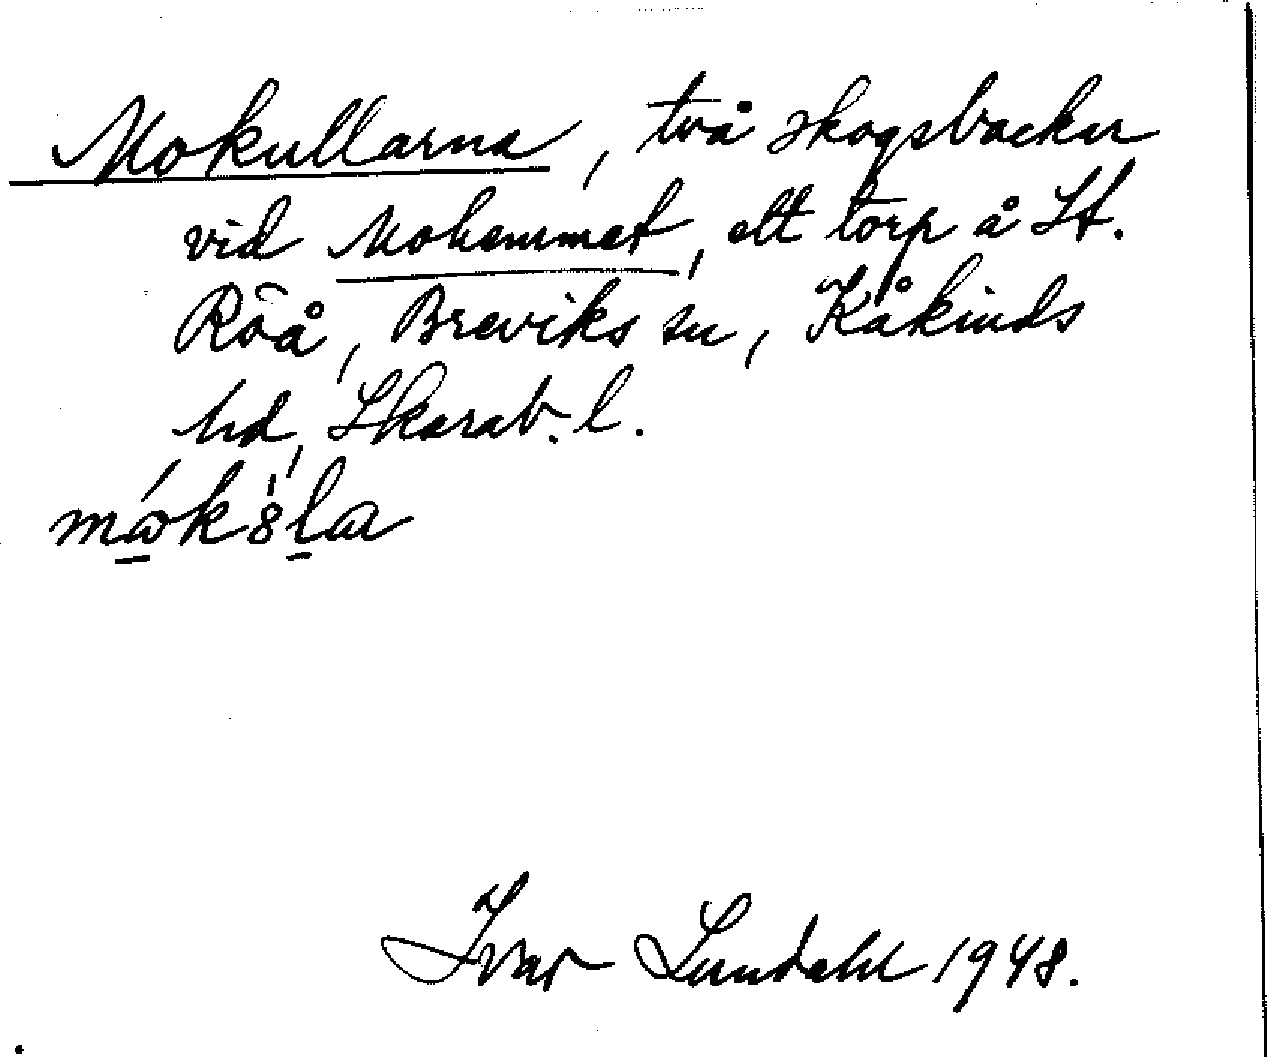 Mokullarna, två skogsbackar
vid Mohemmet, ett torp å St.
Röå, Breviks sn, Kåkinds
hd, Skarab. l.
Ivar Lundahl 1948.